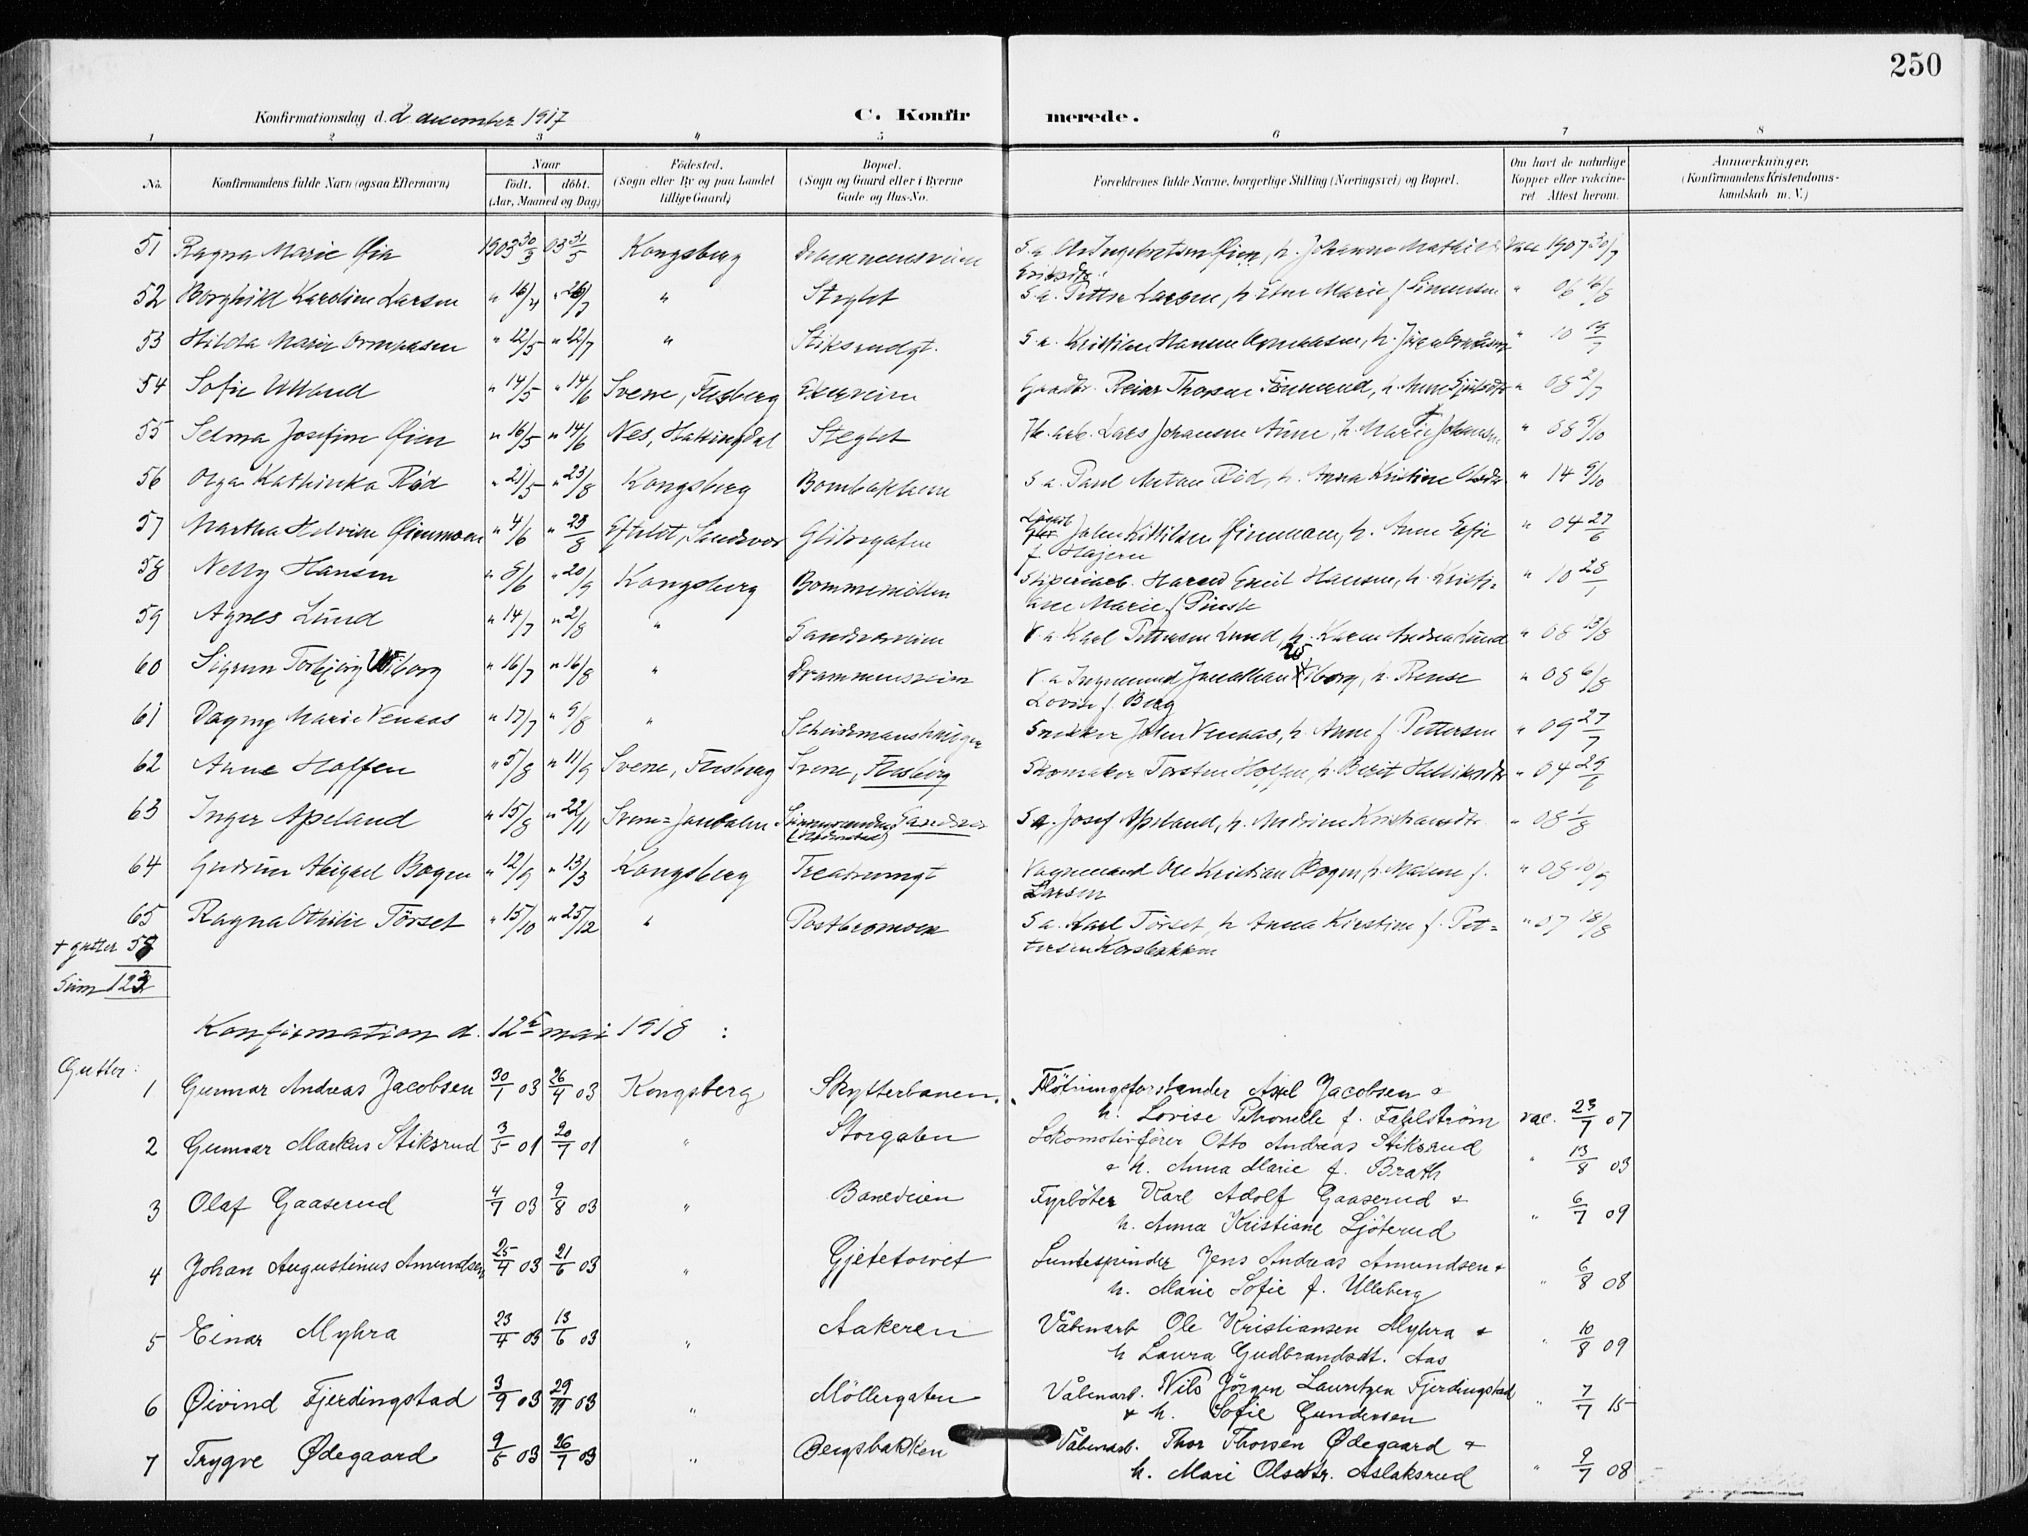 250
Konfirmationsdag d. 2 december 1917 C. Konfirmerede.
1 2 3 4 5 6 7 8
No. Konfirmandens fulde Navn (ogsaa Efternavn) Naar født. døbt. (Aar, Maaned og Dag) Fødested. (Sogn eller By og paa Landet tillige Gaard) Bopæl. (Sogn og Gaard eller i Byerne Gade og Hus-No. Forældrenes fulde Navne, borgerlige Stilling (Næringsvei) og Bopæl. Om havt de naturlige Kopper eller vaccineret. Attest herom. Anmærkninger. (Konfirmandens Kristendomskundskab m. V.)
51 Ragna Marie Øia 1903 30/3 03 31/5 Kongsberg Drammensveien S.a. Ole Ingebretsen Øien, h. Johanne Mathilde Eriksdtr. Vac 1907 30/7
52 Borghild Karoline Larsen " 16/4 " 26/7 " Steglet S.a. Petter Larsen, h. Marie f. Simensen " 06 16/8
53 Hilda Marie Ormaasen " 12/5 " 12/7 " Stiksrudgt. S.a. Kristian Hansen Ormaasen, h. " 10 19/7
54 Sofie Ulland " 14/5 " 14/6 Svene, Flesberg Ekerveien Gaardbr. Reiar Thorsen, h. Anne " 08 2/7
55 Selma Josefine Øien " 16/5 " 14/6 Nes, Hallingdal Steglet Lars Johansen, h. Marie Johansen " 08 9/10
56 Olga Kathinka Rød " 21/5 " 23/8 Kongsberg Bombakken S.a. Paul Anton Rød, h. Anna Kristine Olsdtr " 14 9/10
57 Martha Helvine Øienmoen " 4/6 " 23/8 Efteløt, Sandsvær Glitregaten John Kittilsen Øienmoen, h. Anne f. Hajern " 04 27/6
58 Nelly Hansen " 8/6 " 20/9 Kongsberg Bommemøllen Sliperiarb. Harald Emil Hansen, h. Kristiane Marie f. " 10 28/1
59 Agnes Lund " 14/7 " 2/8 " Sandsværveien V.a. Karl Pettersen Lund, h. Karen Andrea Lund " 08 13/8
60 Sigrun Torbjørg Wiborg " 16/7 " 16/8 " Drammensveien V.a. Ingemund Jonathan Wiborg, h. Lovise f. Berg " 08 6/8
61 Dagny Marie Venaas " 17/7 " 9/8 " Snekker John Venaas, h. Anne f. Pettersen " 09 27/7
62 Anne Hoffen " 5/8 " 11/9 Svene, Flesberg Svene, Flesberg Skomaker Torsten Hoffen, h. Berit Helliksdtr " 04 29/6
63 Inger Apeland " 15/8 " 22/11 Svene = Jondalen Sandsvær S.a. Josef Apeland, h. Andrine Kristiansdtr. " 08 1/8
64 Gudrun Abigael Bogen " 12/9 " 13/3 Kongsberg Vognmand Ole Kristian Bogen, h. Malene f. Larsen " 08 10/7
65 Ragna Othilie Tørset " 15/10 " 25/12 " Postbromoen S.a. Karl Tørset, h. Anna Kirstine f. Pettersen Korsbakken " 07 18/8
+ gutter 58
Sum 123
Konfirmation d. 12te mai 1918 :
Gutter:
1 Gunnar Andreas Jacobsen 30/1 03 26/4 03 Kongsberg Skytterbanen. Fløtningsforstander Axel Jacobsen &
h. Lovise Petronelle f. Fahlstrøm vac. 23/7 07
2 Gunnar Markus Stiksrud 3/5 01 20/7 01 " Storgaten Lokomotivfører Otto Andreas Stiksrud
& h. Anna Marie f. Brath " 13/8 03
3 Olaf Gaaserud 4/7 03 9/8 03 " Baneveien Fyrbøter Karl Adolf Gaaserud &
h. Anna Kristiane Sjøterud " 6/7 09
4 Johan Augustinus Amundsen 25/4 03 21/6 03 " Gjetetorvet Luntespinder Jens Andreas Amundsen &
h. Marie Sofie f. Ulleberg " 6/8 08
5 Einar Myhra 23/4 03 13/6 03 " Aakeren Våbenarb Ole Kristiansen Myhra &
h Laura Gudbrandsdt. Aas " 10/8 09
6 Øivind Fjerdingstad 3/9 03 29/11 03 " Möllergaten Våbenarb. Nils Jörgen Lauritzen Fjerdingstad
& h. Sofie Gundersen " 7/7 15
7 Trygve Ødegaard 9/5 03 26/7 03 " Bergsbakken Våbenarb. Thor Thorsen Ødegaard &
h. Mari Olsdtr. Aslaksrud " 9/7 08